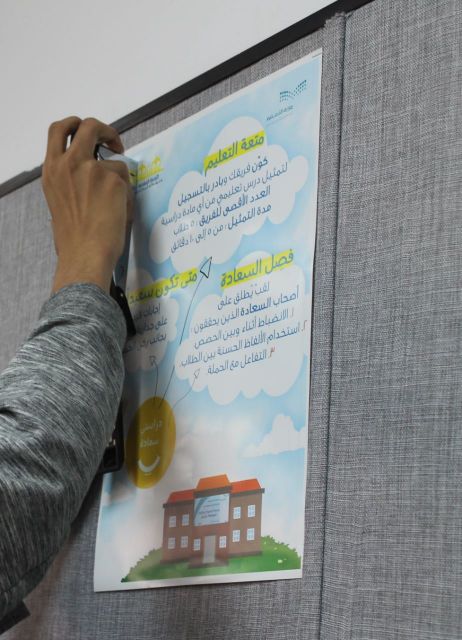 متعة التعليم
كوّن فريقك وبادر بالتسجيل
لتمثيل درس تعليمي من أي مادة دراسية
العدد الأقصى للفريق : ٥ طلاب
مدة التمثيل : من ٥ إلى ١٠ دقائق
فصل السعادة
لقب يُطلق على
أصحاب السعادة الذين يحققون :
١. الانضباط أثناء وبين الحصص
٢. استخدام الألفاظ الحسنة بين الطلاب.
٣. التفاعل مع الحملة
متى تكون سعيد
دراستي
سعادة